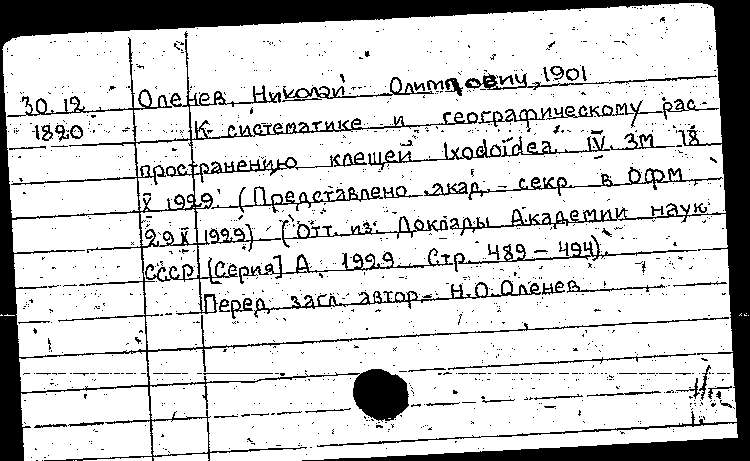 30.12 Оленев, Николай Олимпович, 1901
1820 К систематике и географическому рас-
пространению клещей Ixodoidea. IV. Зм 18
X 1929 (Представлено акад. - секр. в ОФМ
29 X 1929) (Отт. из: Доклады Академии наук
СССР [Серия] А, 1929. Стр. 489 - 494).
Перед загл. автор - Н.О.Оленев